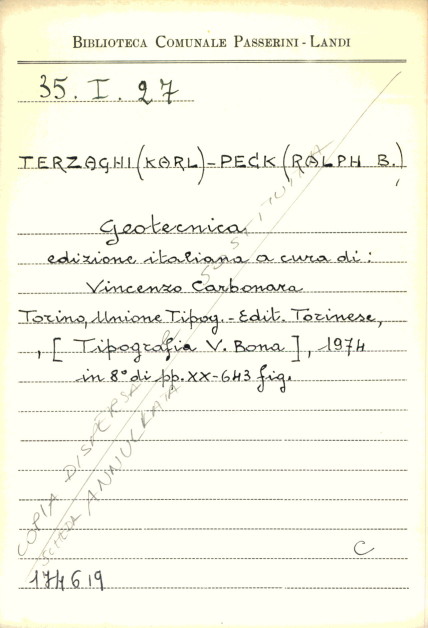 BIBLIOTECA COMUNALE PASSERINI - LANDI
35. I. 27
TERZAGHI (KARL) - PECK (RALPH B.)
Geotecnica
edizione italiana a cura di:
Vincenzo Carbonara
Torino, Unione Tipog. - Edit. Torinese,
, [Tipografia V. Bona], 1974
in 8° di pp. XX-643 fig.
COPIA DISPERSA E SOSTITUITA
SCHEDA ANNULLATA
C
174619